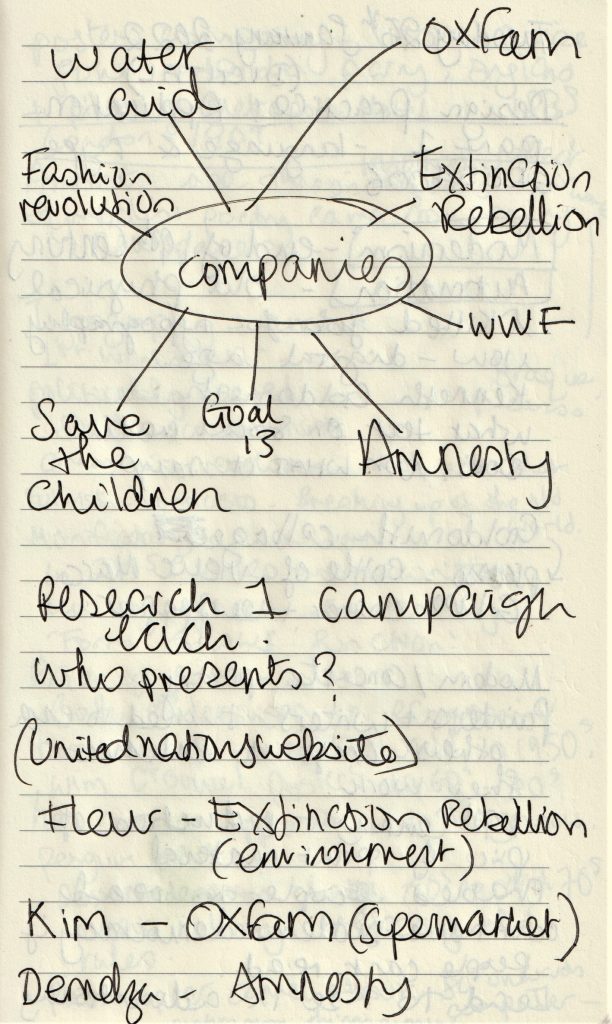 Water
aid
Oxfam
Fashion
revolution
Extinction
Rebellion
companies
WWF
Save
the
children
Goal
13
Amnesty
Research 1 campaign
each.
who presents?
(United nations website)
Fleur - Extinction Rebellion
(environment)
Kim - Oxfam (supermarket)
Demelza - Amnesty